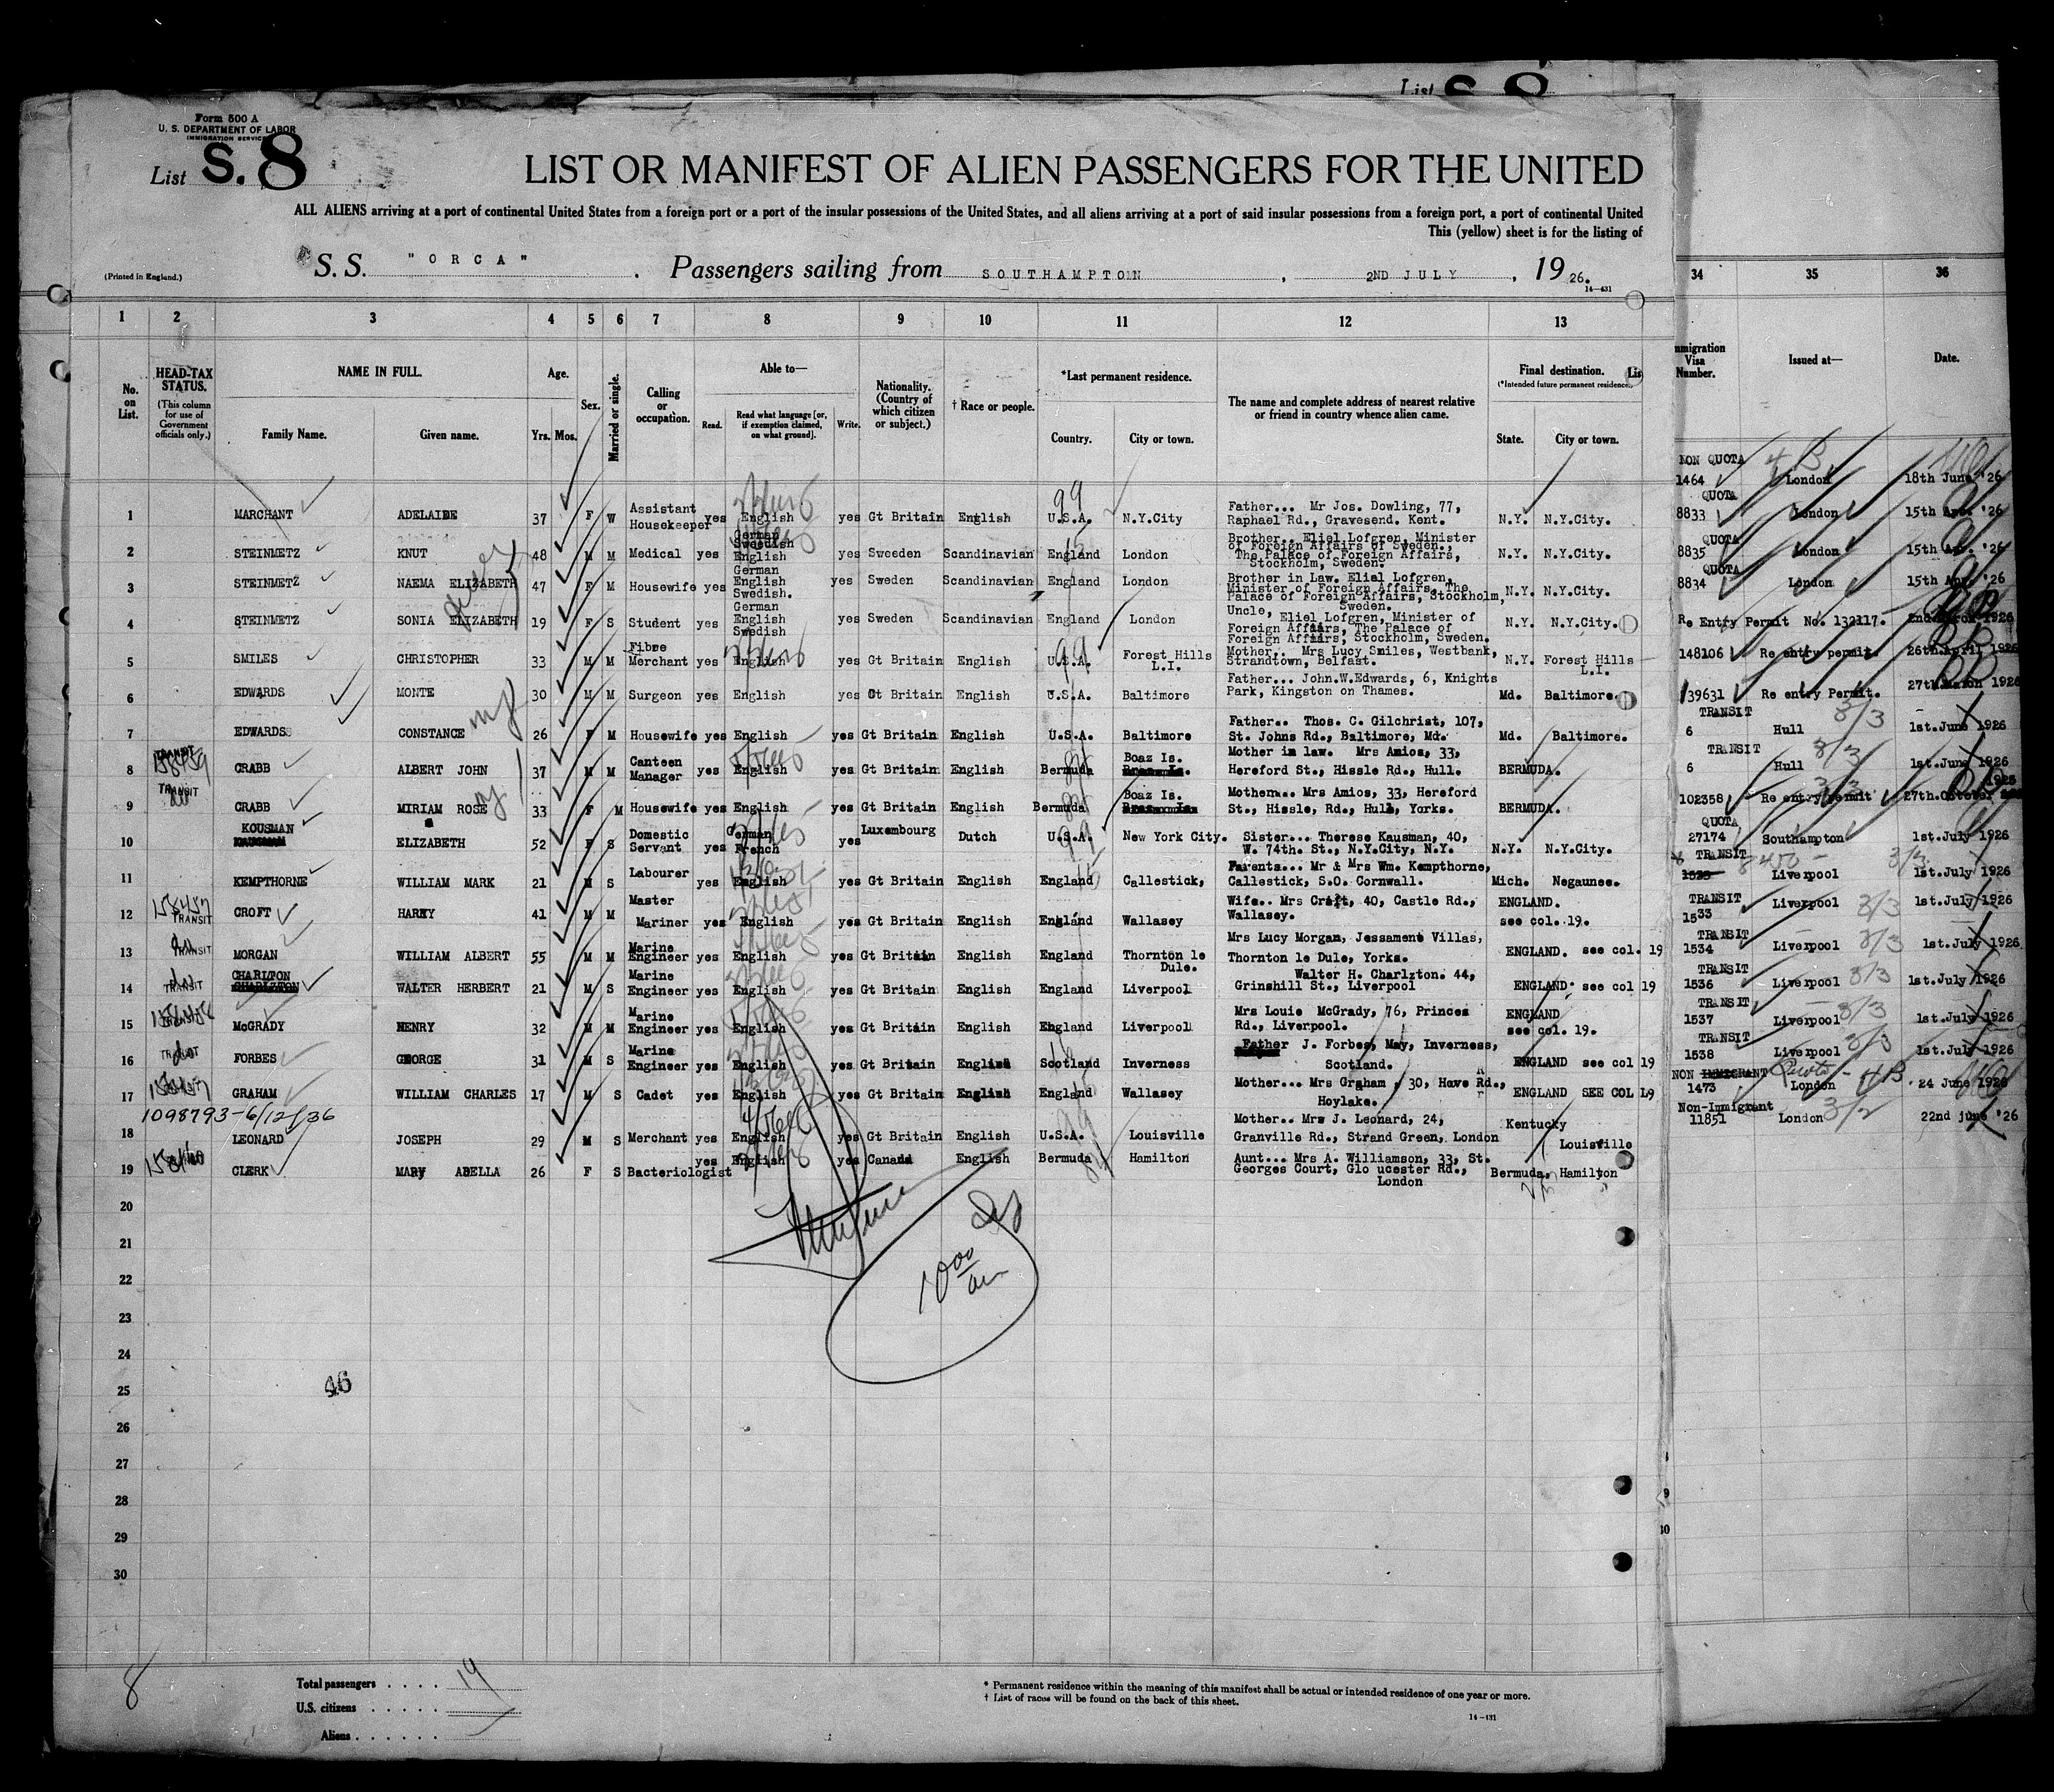 List S 8
Form 500 A
U. S. DEPARTMENT OF LABOR
IMMIGRATION SERVICE
List S. 8
LIST OR MANIFEST OF ALIEN PASSENGERS FOR THE UNITED
ALL ALIENS arriving at a port of continental United States from a foreign port or a port of the insular possessions of the United States, and all aliens arriving at a port of said insular possessions from a foreign port, a port of continental United
This (yellow) sheet is for the listing of
(Printed in England.) S. S. "ORCA" . Passengers sailing from SOUTHAMPTON , 2ND JULY , 19 26.
14-431
1 2 3 4 5 6 7 8 9 10 11 12 13 34 35 36
No. on List. HEAD-TAX STATUS. (This column for use of Government officials only.) NAME IN FULL. Family Name. Given name. Age. Yrs. Mos. Sex. Married or single. Calling or occupation. Able to— Read. Read what language [or, if exemption claimed, on what ground]. Write. Nationality. (Country of which citizen or subject.) † Race or people. *Last permanent residence. Country. City or town. The name and complete address of nearest relative or friend in country whence alien came. Final destination. (*Intended future permanent residence.) State. City or town. Lis mmigration Visa Number. Issued at— Date.
1 MARCHANT ADELAIDE 37 F W Assistant Housekeeper yes English yes Gt Britain English U.S.A. N.Y.City Father... Mr Jos. Dowling, 77, Raphael Rd., Gravesend. Kent. N.Y. N.Y.City. NON QUOTA 1464 London 18th June '26
2 STEINMETZ KNUT 48 M M Medical yes German Swedish English yes Sweeden Scandinavian England London Brother.. Eliel Lofgren, Minister of Foreign Affairs of Sweden., The Palace of Foreign Affairs, Stockholm, Sweden. N.Y. N.Y.City. QUOTA 8833 London 15th Apr. '26
3 STEINMETZ NAEMA ELIZABETH 47 F M Housewife yes German English Swedish. yes Sweden Scandinavian England London Brother in Law. Elial Lofgren, Minister of Foreign Affairs, The Palace of Foreign Affairs, Stockholm, Sweden. N.Y. N.Y.City. QUOTA 8835 London 15th Apr. '26
4 STEINMETZ SONIA ELIZABETH 19 F S Student yes German English Swedish yes Sweden Scandinavian England London Uncle, Eliel Lofgren, Minister of Foreign Affairs, The Palace of Foreign Affairs, Stockholm, Sweden. N.Y. N.Y.City. QUOTA 8834 London 15th Apr. '26
5 SMILES CHRISTOPHER 33 M M Fibre Merchant yes English yes Gt Britain English U.S.A. Forest Hills L.I. Mother.. Mrs Lucy Smiles, Westbank, Strandtown, Belfast. N.Y. Forest Hills L.I. Re Entry Permit No. 132117. 2nd March 1926
6 EDWARDS MONTE 30 M M Surgeon yes English yes Gt Britain English U.S.A. Baltimore Father... John.W.Edwards, 6, Knights Park, Kingston on Thames. Md. Baltimore. 148106 Re entry permit. 26th April 1926
7 EDWARDS CONSTANCE 26 F M Housewife yes English yes Gt Britain English U.S.A. Baltimore Father.. Thos. C. Gilchrist, 107, St. Johns Rd., Baltimore, Md. Md. Baltimore. 139631 Re entry Permit. 27th March 1926
8 TRANSIT 158459 CRABB ALBERT JOHN 37 M M Canteen Manager yes English yes Gt Britain English Bermuda Boaz Is. Mother in law. Mrs Amios, 33, Hereford St., Hissle Rd., Hull. BERMUDA. TRANSIT 6 Hull 3/3 1st.June 1926
9 TRANSIT do CRABB MIRIAM ROSE 33 F M Housewife yes English yes Gt Britain English Bermuda Boaz Is. Mother.. Mrs Amios, 33, Hereford St., Hissle, Rd., Hull, Yorks. BERMUDA. TRANSIT 6 Hull 3/3 1st.June 1926
10 KOUSMAN ELIZABETH 52 F S Domestic Servant yes German French yes Luxembourg Dutch U.S.A. New York City. Sister... Therese Kausman, 40, W. 74th. St., N.Y.City, N.Y. N.Y. N.Y.City. 102358 Re entry permit 27th.October 1925
11 KEMPTHORNE WILLIAM MARK 21 M S Labourer yes English yes Gt Britain English England Callestick, Parents... Mr & Mrs Wm. Kempthorne, Callestick, S.O. Cornwall. Mich. Negaunee. QUOTA 27174 Southampton 1st.July 1926
12 158457 TRANSIT CROFT HARRY 41 M M Master Mariner yes English yes Gt Britain English England Wallasey Wife.. Mrs Croft, 40, Castle Rd., Wallasey. ENGLAND. see col. 19. TRANSIT Liverpool 3/3 1st.July 1926
13 do TRANSIT MORGAN WILLIAM ALBERT 55 M M Marine Engineer yes English yes Gt Britain English England Thornton le Dule. Mrs Lucy Morgan, Jessamene Villas, Thornton le Dule, Yorks. ENGLAND. see col. 19 TRANSIT 1533 Liverpool 3/3 1st.July 1926
14 do TRANSIT CHARLTON CHARLZTON WALTER HERBERT 21 M S Marine Engineer yes English yes Gt Britain English England Liverpool Walter H. Charlzton. 44, Grinshill St., Liverpool ENGLAND. see col 19 TRANSIT 1534 Liverpool 3/3 1st.July 1926
15 158458 TRANSIT McGRADY HENRY 32 M M Marine Engineer yes English yes Gt Britain English England Liverpool Mrs Louie McGrady, 76, Princes Rd., Liverpool. ENGLAND see col. 19. TRANSIT 1536 Liverpool 3/3 1st.July 1926
16 TRANSIT do FORBES GEORGE 31 M S Marine Engineer yes English yes Gt Britain English Scotland Inverness Father J. Forbes, May, Inverness, Scotland. ENGLAND see col 19 TRANSIT 1537 Liverpool 3/3 1st.July 1926
17 GRAHAM WILLIAM CHARLES 17 M S Cadet yes English yes Gt Britain English England Wallasey Mother... Mrs Graham, 30, Hove Rd., Hoylake. ENGLAND SEE COL 19 TRANSIT 1538 Liverpool 3/3 1st.July 1926
1098793-6/12/36
18 LEONARD JOSEPH 29 M S Merchant yes English yes Gt Britain English U.S.A. Louisville Mother.. Mrs J. Leonard, 24, Granville Rd., Strand Green, London Kentucky Louisville NON IMMIGRANT 1473 London 4B 24 June 1926
19 158460 CLERK MARY ABELLA 26 F S Bacteriologist yes English yes Canada English Bermuda Hamilton Aunt... Mrs A. Williamson, 33, St. Georges Court, Glo ucester Rd., London Bermuda, Hamilton Non-Immigrant 11851 London 3/2 22nd june '26
20
21
22 10 00 am
23
24
25 46
26
27
28
29
30
8
Total passengers . . . . 19
U.S. citizens . . . . .
Aliens . . . . . .
* Permanent residence within the meaning of this manifest shall be actual or intended residence of one year or more.
† List of races will be found on the back of this sheet.
14-431